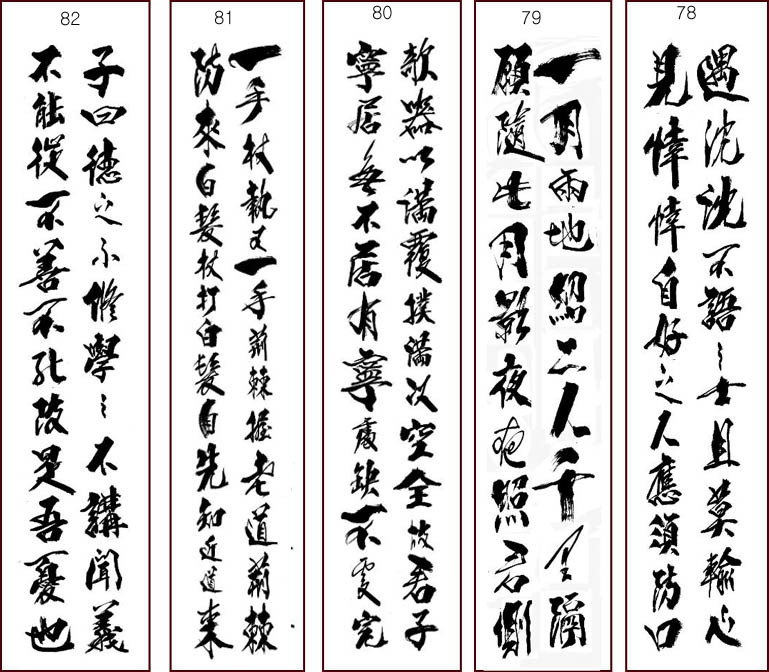 78
遇沈沈不語之士且莫輸心
見悻悻自好之人應須防口
79
一月兩地照二人千里隔
願隨此月影夜夜照君側
80
欹器以滿覆撲滿以空全故君子
寧居無不居有寧處缺不處完
81
一手杖執又一手荊棘握老道荊棘
防來白髮杖打白髮自先知近道來
82
子曰德之不修學之不講聞義
不能徙不善不能改是吾憂也